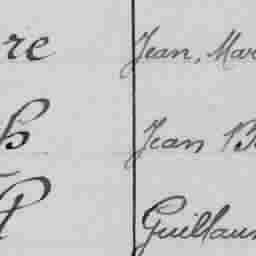 re Jean, Mar
h Jean B
P Guillau